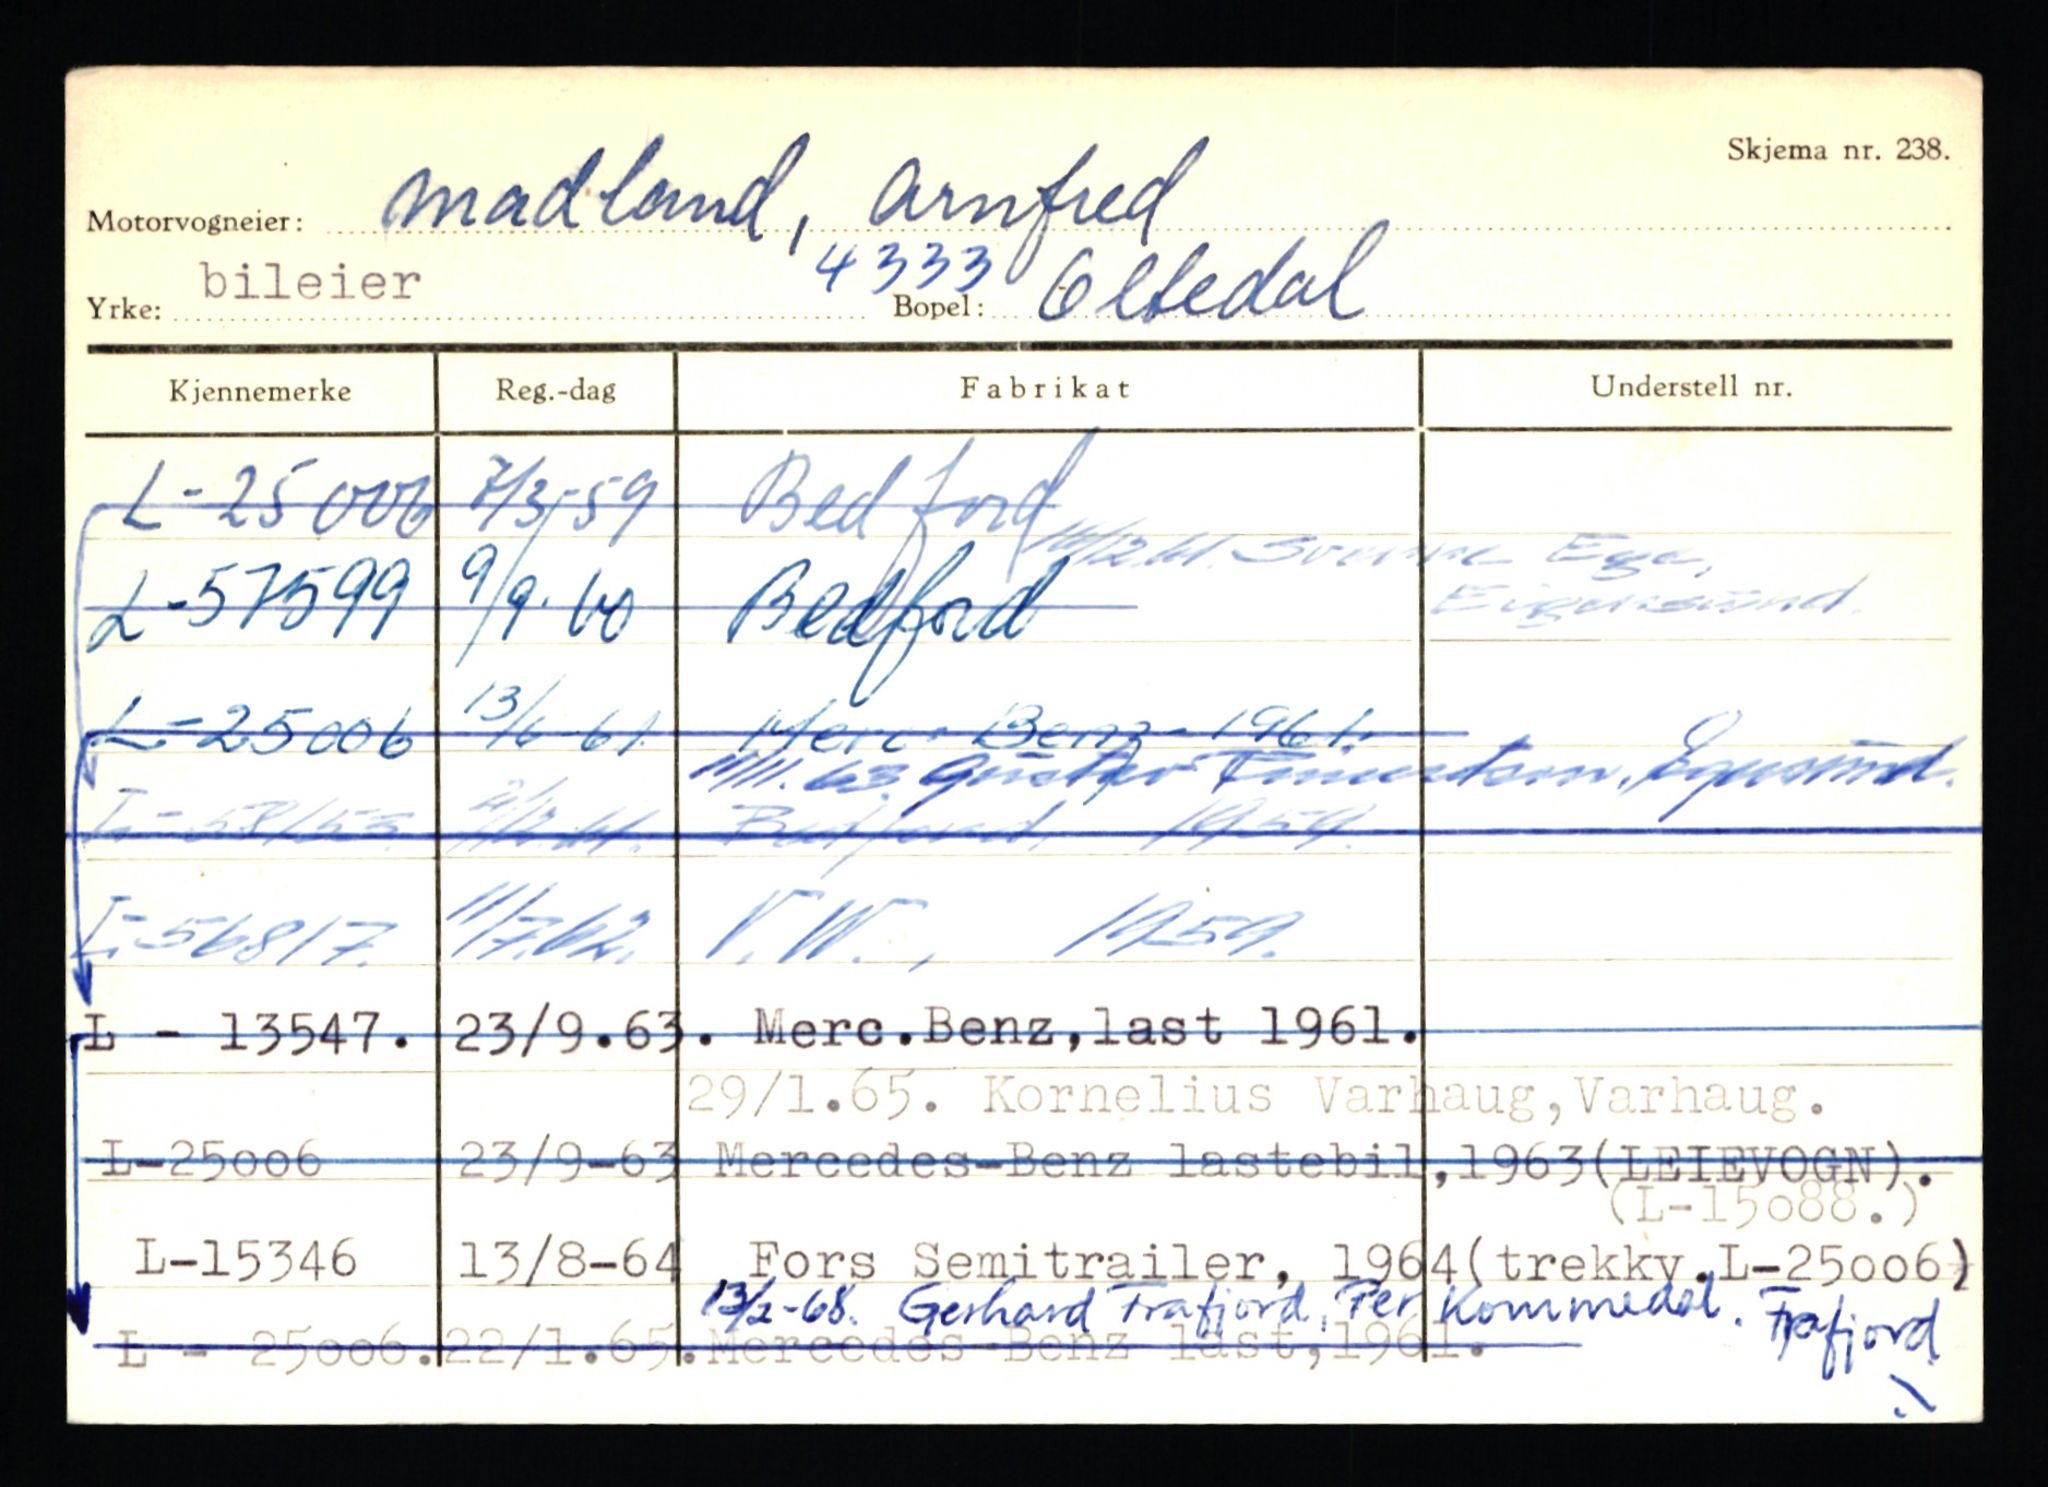 Skjema nr. 238.
Motorvogneier: Madland, Arnfred
4333
Yrke: bileier Bopel: Oltedal
Kjennemerke Reg.-dag Fabrikat Understell nr.
L-25006 7/3-59 Bedford
14/12.61. Sverre Ege,
L-57599 9/9.60 Bedford Eigersund.
L-25006 13/6 61. Merc. Benz 1961.
11/11.63. Gustav Egersund.
L-58153. 61. Bedford 1959.
L-56817. 11/7.62. V.W., 1959.
L - 13547. 23/9.63. Merc.Benz,last 1961.
29/1.65. Kornelius Varhaug,Varhaug.
L-25006 23/9-63 Mercedes-Benz lastebil,1963(LEIEVOGN).
(L-15088.)
L-15346 13/8-64 Fors Semitrailer, 1964(trekkv.L-25006)
13/2-68. Gerhard Frafjord, Per Kommedal. Frafjord
L - 25006. 22/1.65. Mercedes-Benz last,1961.